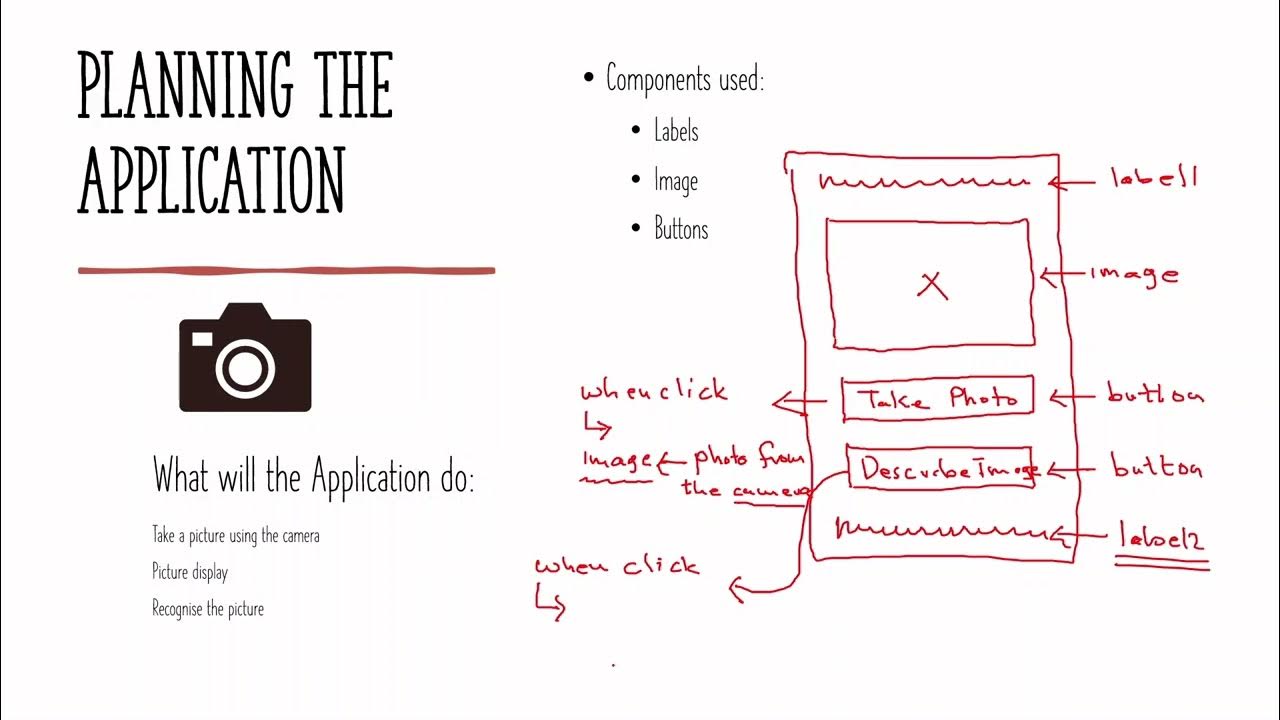 PLANNING THE
APPLICATION
What will the Application do:
Take a picture using the camera
Picture display
Recognise the picture
• Components used:
• Labels
• Image
• Buttons
label1
image
Take Photo
button
DescribeImage
button
label2
when click
Image ← photo from
the camera
when click